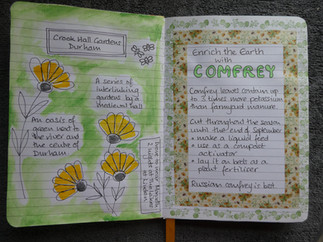 Crook Hall Gardens
Durham
A series of
interlinking
gardens by a
medieval hall
An oasis of
green next to
the river and
the centre of
Durham
Enrich the Earth
with
COMFREY
Comfrey leaves contain up
to 3 times more potassium
than farmyard manure
Cut throughout the season
until the end of September
• make a liquid feed
• use as a compost
activator
• lay it on beds as a
plant fertiliser
Russian comfrey is best